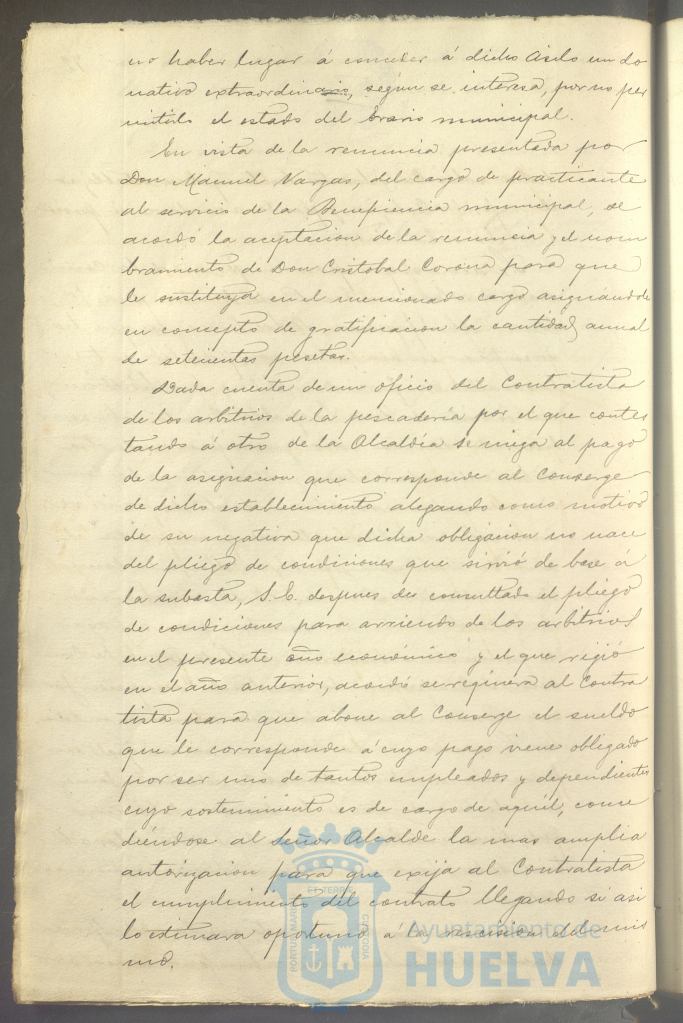 no haber lugar á conceder á dicho Asilo un do
nativo extraordinario, según se interesa, por no per
mitirlo el estado del Erario municipal.
En vista de la renuncia presentada por
Don Manuel Vargas, del cargo de practicante
al servicio de la Beneficencia municipal, se
acordó la aceptacion de la renuncia y el nom
bramiento de Don Cristobal Corona para que
le sustituya en el mencionado cargo asignándole
en concepto de gratificacion la cantidad anual
de setecientas pesetas.
Dada cuenta de un oficio del Contratista
de los arbitrios de la pescadería por el que contes
tando á otro de la Alcaldía se niega al pago
de la asignacion que corresponde al Conserge
de dicho establecimiento alegando como motivo
de su negativa que dicha obligacion no nace
del pliego de condiciones que sirvió de base á
la subasta, S. E. despues de consultado el pliego
de condiciones para arriendo de los arbitrios
en el presente año económico y el que rigió
en el año anterior, acordó se requiera al Contra
tista para que abone al Conserge el sueldo
que le corresponde á cuyo pago viene obligado
por ser uno de tantos empleados y dependientes
cuyo sostenimiento es de cargo de aquél, conce
diéndose al Señor Alcalde la mas amplia
autorizacion para que exija al Contratista
el cumplimiento del contrato llegando si asi
lo estimara oportuno á la rescision del mis
mo.
PORTUS MARIS
ET TERRE
CUSTODIA
Ayuntamiento de
HUELVA